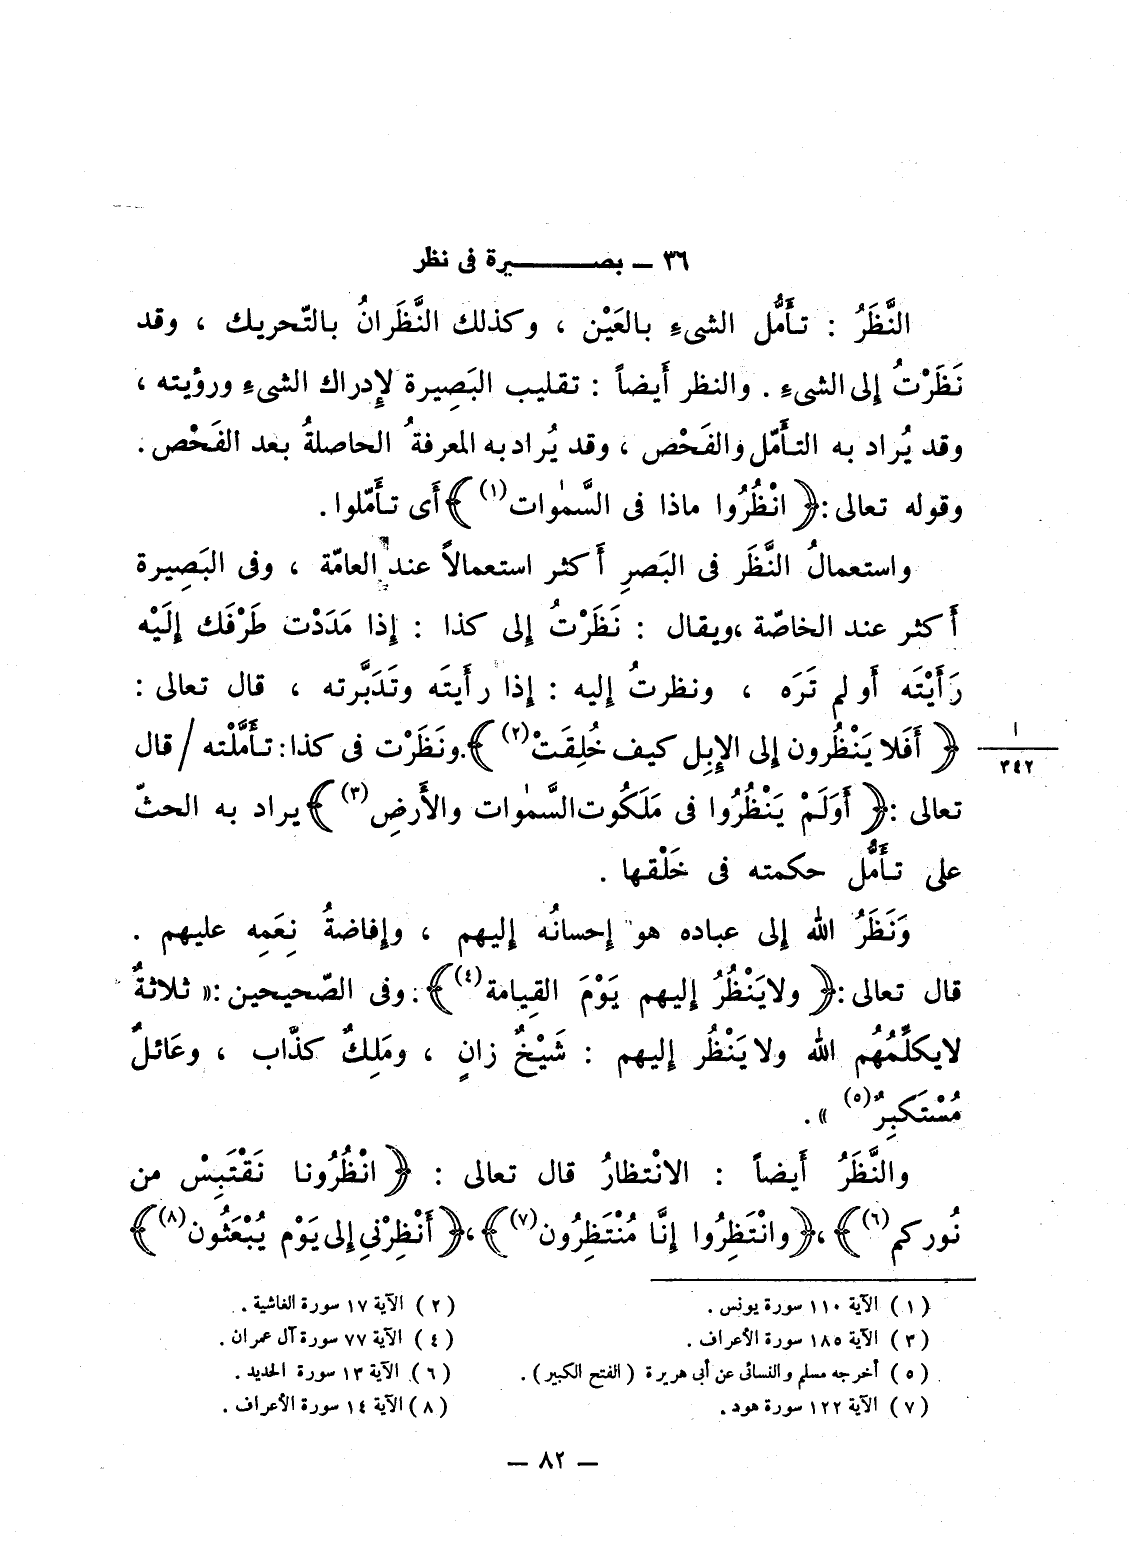 ٣٦ ـ بصـــــــيرة فى نظر
النَّظَرُ : تأَمُّل الشىءِ بالعَيْن ، وكذلك النَّظَرانُ بالتّحريك ، وقد
نَظَرْتُ إِلى الشىءِ . والنظر أَيضاً : تقليب البَصِيرة لإِدراك الشىءِ ورؤيته ،
وقد يُراد به التأَمّل والفَحْص ، وقد يُراد به المعرفةُ الحاصلةُ بعد الفَحْص .
وقوله تعالى : ﴿ انْظُرُوا ماذا فى السَّمٰوات(١) ﴾ أَى تأَمّلوا .
واستعمالُ النَّظَر فى البَصرِ أَكثر استعمالاً عند العامّة ، وفى البَصِيرة
أَكثر عند الخاصّة ، ويقال : نَظَرْتُ إِلى كذا : إِذا مَدَدْت طَرْفَك إِلَيْه
رَأَيْتَه أَو لم تَرَه ، ونظرتُ إِليه : إِذا رأَيتَه وتَدَبَّرته ، قال تعالى :
﴿ أَفَلا يَنْظُرون إِلى الإِبِل كيف خُلِقَتْ(٢) ﴾ . ونَظَرْت فى كذا : تأَمَّلْته / قال
ا
٣٤٢
تعالى : ﴿ أَوَلَمْ يَنْظُرُوا فى مَلَكُوت السَّمٰوات والأَرضِ(٣) ﴾ يراد به الحثّ
على تأَمُّل حكمته فى خَلْقها .
وَنَظَرُ الله إِلى عباده هو إِحسانُه إِليهم ، وإِفاضةُ نِعَمِه عليهم .
قال تعالى : ﴿ ولا يَنْظُرُ إِليهم يَوْمَ القِيامة(٤) ﴾ . وفى الصّحيحين : « ثلاثةٌ
لا يكلِّمُهُم الله ولا يَنْظُر إِليهم : شَيْخٌ زانٍ ، ومَلِكٌ كذَّاب ، وعَائلٌ
مُسْتَكبِرٌ(٥) » .
والنَّظَرُ أَيضاً : الانْتظارُ قال تعالى : ﴿ انْظُرُونا نَقْتَبِسْ من
نُوركم(٦) ﴾ ، ﴿ وانْتَظِرُوا إِنَّا مُنْتَظِرُون(٧) ﴾ ، ﴿ أَنْظِرْنِي إِلى يَوْم يُبْعَثُون(٨) ﴾
(١) الآية ١١٠ سورة يونس .
(٢) الآية ١٧ سورة الغاشية .
(٣) الآية ١٨٥ سورة الأعراف .
(٤) الآية ٧٧ سورة آل عمران .
(٥) أخرجه مسلم والنسائى عن أبى هريرة (الفتح الكبير) .
(٦) الآية ١٣ سورة الحديد .
(٧) الآية ١٢٢ سورة هود .
(٨) الآية ١٤ سورة الأعراف .
— ٨٢ —